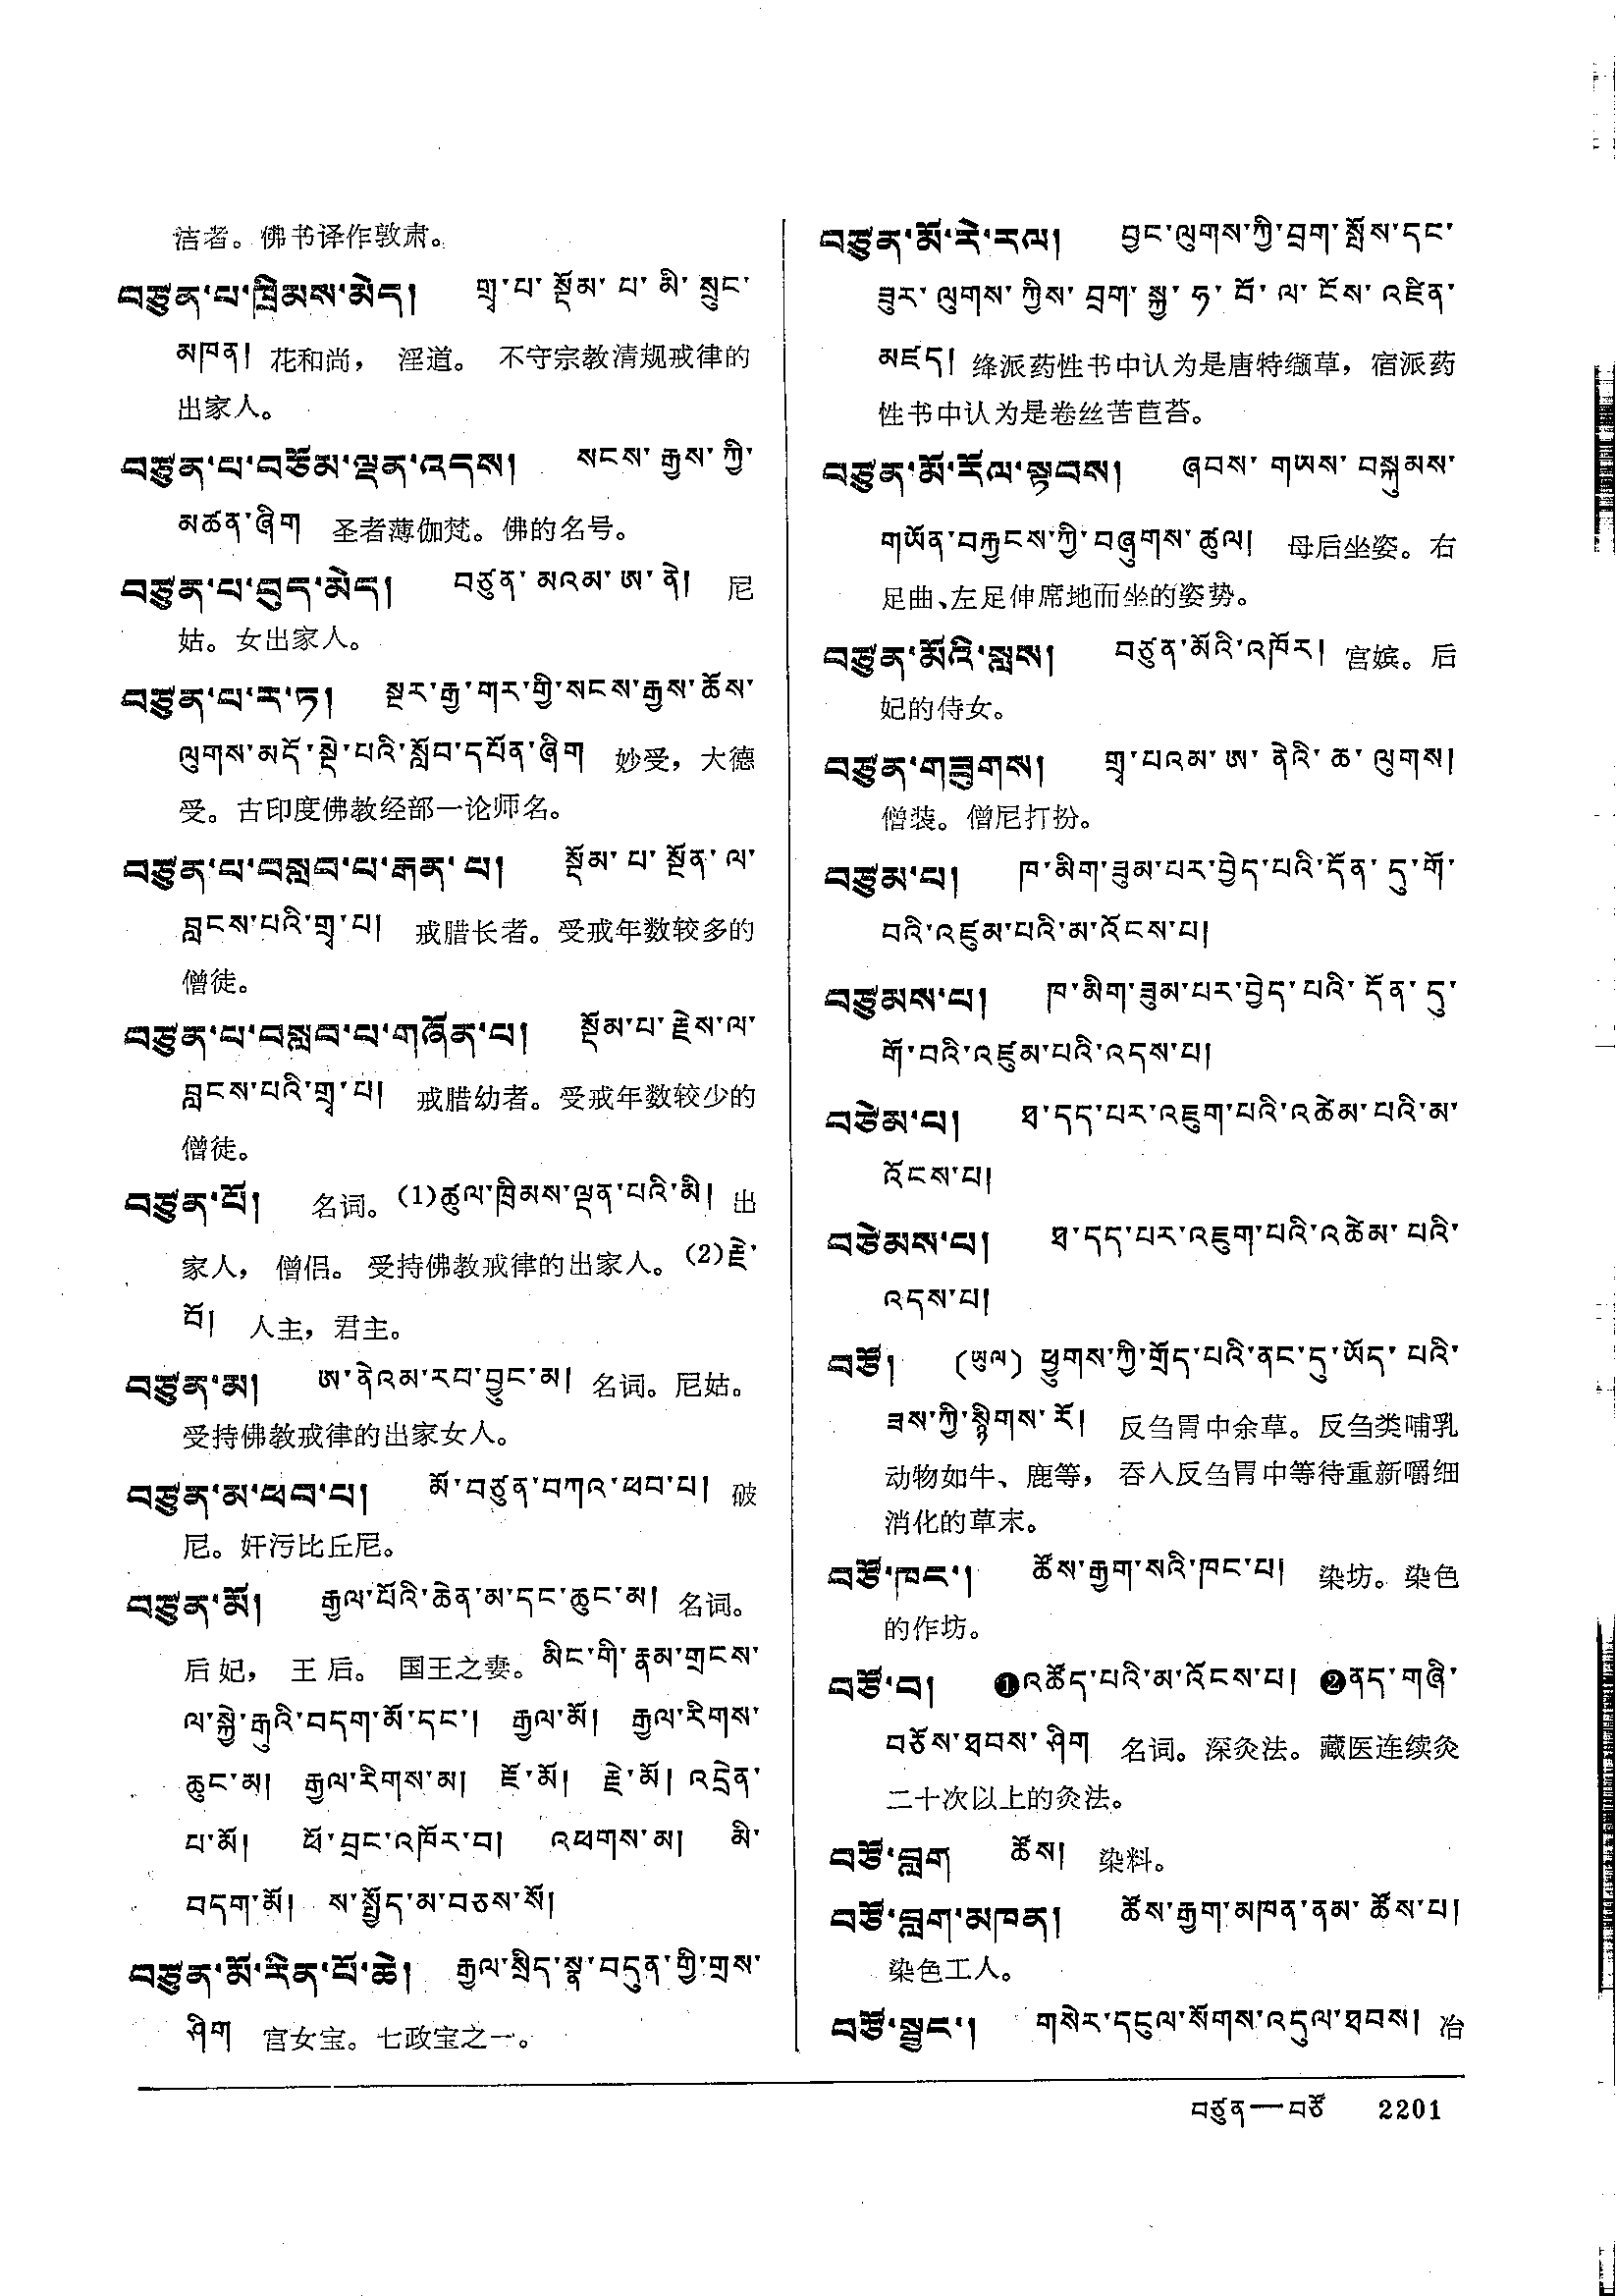 洁者。佛书译作敦肃。
བཙུན་པ་ཁྲིམས་མེད། གྲྭ་པ་སྡོམ་པ་མི་སྲུང་
མཁན། 花和尚，淫道。不守宗教清规戒律的
出家人。
བཙུན་པ་བཅོམ་ལྡན་འདས། སངས་རྒྱས་ཀྱི་
མཚན་ཞིག 圣者薄伽梵。佛的名号。
བཙུན་པ་བུད་མེད། བཙུན་མའམ་ཨ་ནེ། 尼
姑。女出家人。
བཙུན་པ་ར་ཏ། སྔར་རྒྱ་གར་གྱི་སངས་རྒྱས་ཆོས་
ལུགས་མདོ་སྡེ་པའི་སློབ་དཔོན་ཞིག 妙受，大德
受。古印度佛教经部一论师名。
བཙུན་པ་བསླབ་པ་རྒན་པ། སྡོམ་པ་སྔོན་ལ་
བླངས་པའི་གྲྭ་པ། 戒腊长者。受戒年数较多的
僧徒。
བཙུན་པ་བསླབ་པ་གཞོན་པ། སྡོམ་པ་རྗེས་ལ་
བླངས་པའི་གྲྭ་པ། 戒腊幼者。受戒年数较少的
僧徒。
བཙུན་པོ། 名词。(1)ཚུལ་ཁྲིམས་ལྡན་པའི་མི། 出
家人，僧侣。受持佛教戒律的出家人。(2)རྗེ་
བོ། 人主，君主。
བཙུན་མ། ཨ་ནེའམ་རབ་བྱུང་མ། 名词。尼姑。
受持佛教戒律的出家女人。
བཙུན་མ་ཕབ་པ། མོ་བཙུན་བཀའ་ཕབ་པ། 破
尼。奸污比丘尼。
བཙུན་མོ། རྒྱལ་པོའི་ཆེན་མ་དང་ཆུང་མ། 名词。
后妃，王后。国王之妻。མིང་གི་རྣམ་གྲངས་
ལ་སྐྱེ་རྒུའི་བདག་མོ་དང་། རྒྱལ་མོ། རྒྱལ་རིགས་
ཆུང་མ། རྒྱལ་རིགས་མ། ཇོ་མོ། རྗེ་མོ། འདྲེན་
པ་མོ། ཕོ་བྲང་འཁོར་བ། འཕགས་མ། མི་
བདག་མོ། ས་སྤྱོད་མ་བཅས་སོ།
བཙུན་མོ་རིན་པོ་ཆེ། རྒྱལ་སྲིད་སྣ་བདུན་གྱི་གྲས་
ཤིག 宫女宝。七政宝之一。
བཙུན་མོ་རེ་རལ། བྱང་ལུགས་ཀྱི་བྲག་སྤོས་དང་
ཟུར་ལུགས་ཀྱིས་བྲག་སྐྱ་ཧ་བོ་ལ་ངོས་འཛིན་
མཛད། 绛派药性书中认为是唐特缬草，宿派药
性书中认为是卷丝苦苣苔。
བཙུན་མོ་རོལ་སྟབས། ཞབས་གཡས་བསྐུམས་
གཡོན་བརྐྱངས་ཀྱི་བཞུགས་ཚུལ། 母后坐姿。右
足曲、左足伸席地而坐的姿势。
བཙུན་མོའི་སླས། བཙུན་མོའི་འཁོར། 宫嫔。后
妃的侍女。
བཙུན་གཟུགས། གྲྭ་པའམ་ཨ་ནེའི་ཆ་ལུགས།
僧装。僧尼打扮。
བཙུམ་པ། ཁ་མིག་ཟུམ་པར་བྱེད་པའི་དོན་དུ་གོ་
བའི་འཛུམ་པའི་མ་འོངས་པ།
བཙུམས་པ། ཁ་མིག་ཟུམ་པར་བྱེད་པའི་དོན་དུ་
གོ་བའི་འཛུམ་པའི་འདས་པ།
བཙེམ་པ། ཐ་དད་པར་འཇུག་པའི་འཚེམ་པའི་མ་
འོངས་པ།
བཙེམས་པ། ཐ་དད་པར་འཇུག་པའི་འཚེམ་པའི་
འདས་པ།
བཙོ། (ཡུལ) ཕྱུགས་ཀྱི་གྲོད་པའི་ནང་དུ་ཡོད་པའི་
ཟས་ཀྱི་སྙིགས་རོ། 反刍胃中余草。反刍类哺乳
动物如牛、鹿等，吞入反刍胃中等待重新嚼细
消化的草末。
བཙོ་ཁང་། ཚོས་རྒྱག་སའི་ཁང་པ། 染坊。染色
的作坊。
བཙོ་བ། ❶འཚོད་པའི་མ་འོངས་པ། ❷ནད་གཞི་
བཅོས་ཐབས་ཤིག 名词。深灸法。藏医连续灸
二十次以上的灸法。
བཙོ་བླག ཚོས། 染料。
བཙོ་བླག་མཁན། ཚོས་རྒྱག་མཁན་ནམ་ཚོས་པ།
染色工人。
བཙོ་སྦྱང་། གསེར་དངུལ་སོགས་འདུལ་ཐབས། 冶
བཙུན—བཙོ 2201